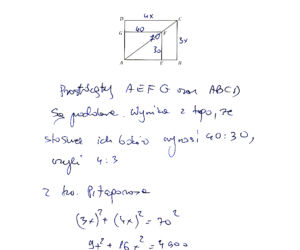 D 4x C
G 40 F
3x
30
A E B
Prostokąty AEFG oraz ABCD
Są podobne. Wynika z tego, że
stosunek ich boków wynosi 40:30,
czyli 4:3
Z tw. Pitagorasa
(3x)²+(4x)²=70²
9x²+16x²=4900